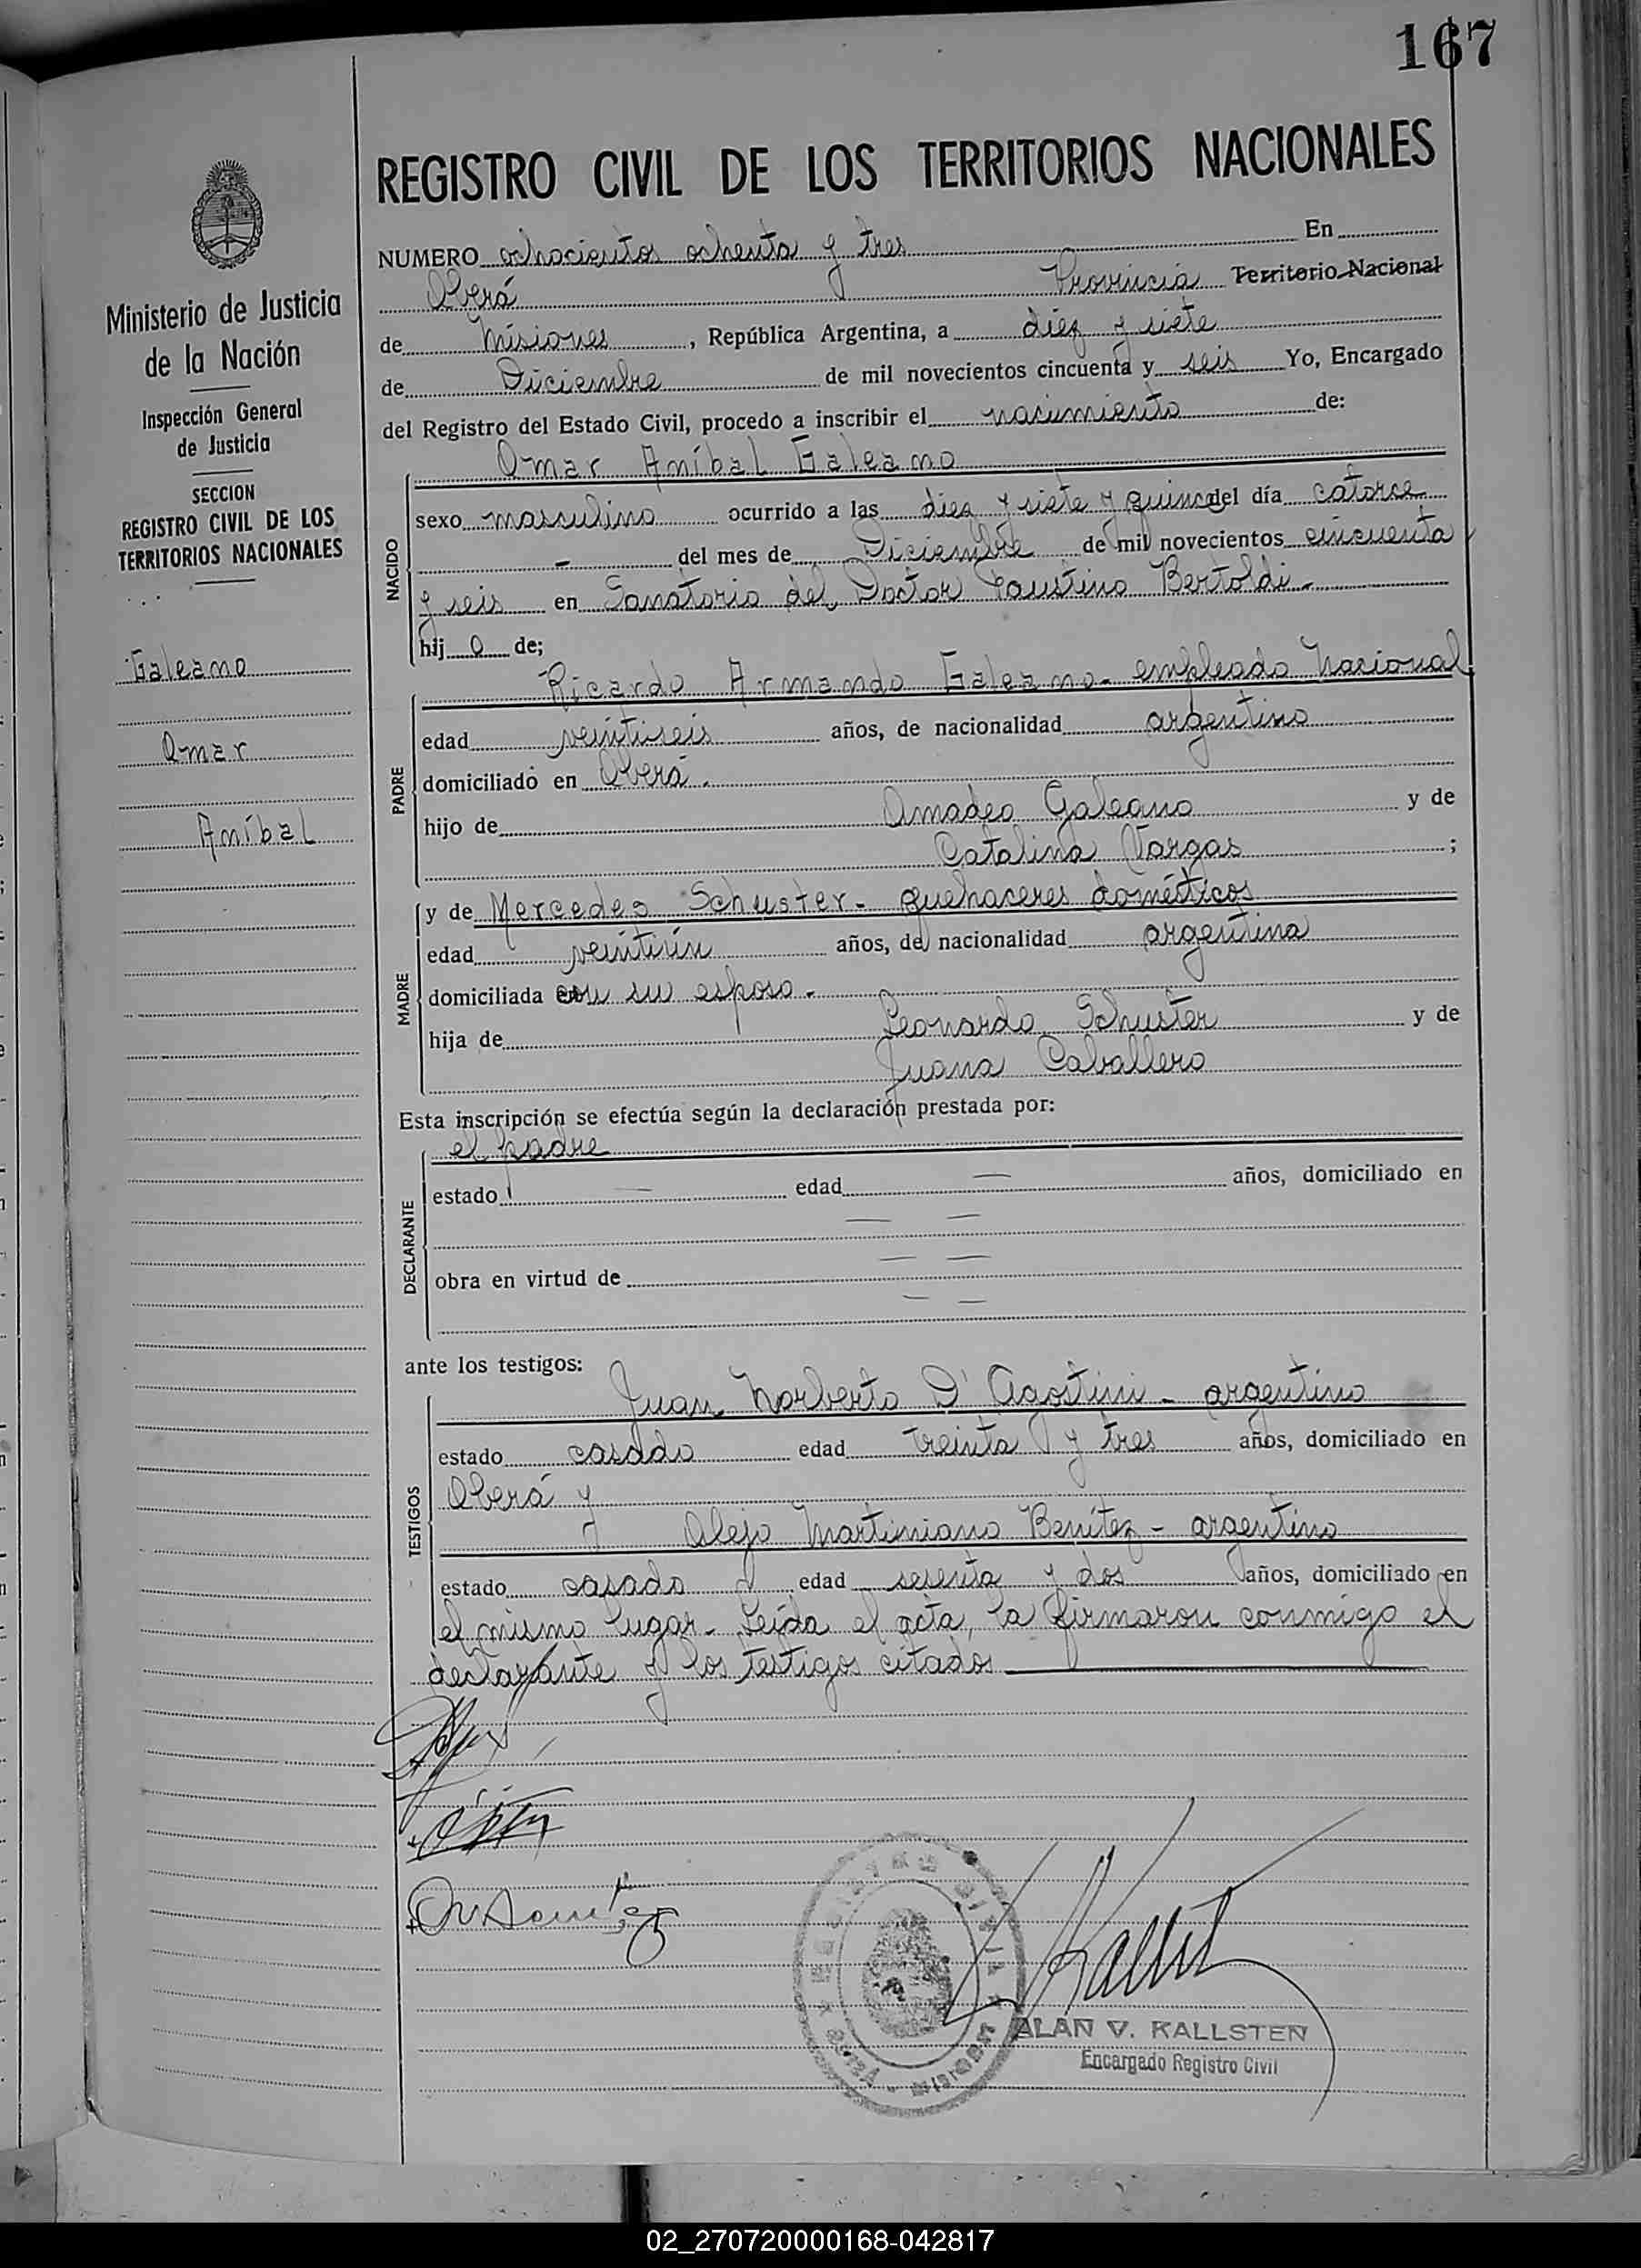 167
REGISTRO CIVIL DE LOS TERRITORIOS NACIONALES
Ministerio de Justicia
de la Nación
Inspección General
de Justicia
SECCION
REGISTRO CIVIL DE LOS
TERRITORIOS NACIONALES
Galeano
Omar
Aníbal
NUMERO ochocientos ochenta y tres En
Oberá Provincia Territorio Nacional
de Misiones, República Argentina, a diez y siete
de Diciembre de mil novecientos cincuenta y seis Yo, Encargado
del Registro del Estado Civil, procedo a inscribir el nacimiento de:
NACIDO
Omar Aníbal Galeano
sexo masculino ocurrido a las diez y siete y quince del día catorce
- del mes de Diciembre de mil novecientos cincuenta
y seis en Sanatorio del Doctor Faustino Bertoldi.-
hijo de;
PADRE
Ricardo Armando Galeano- empleado Nacional
edad veintiseis años, de nacionalidad argentino
domiciliado en Oberá.
hijo de Amadeo Galeano y de
Catalina Vargas ;
MADRE
y de Mercedes Schuster- quehaceres domésticos
edad veintiún años, de nacionalidad argentina
domiciliada con su esposo.-
hija de Leonardo Schuster y de
Juana Caballero
Esta inscripción se efectúa según la declaración prestada por:
DECLARANTE
el padre
estado — edad — años, domiciliado en
— —
— —
obra en virtud de
— —
ante los testigos:
TESTIGOS
Juan Norberto D'Agostini - argentino
estado casado edad treinta y tres años, domiciliado en
Oberá y
Alejo Martiniano Benítez - argentino
estado casado edad sesenta y dos años, domiciliado en
el mismo lugar- Leída el acta, la firmaron conmigo el
declarante y los testigos citados
ALAN V. KALLSTEN
Encargado Registro Civil
02_270720000168-042817